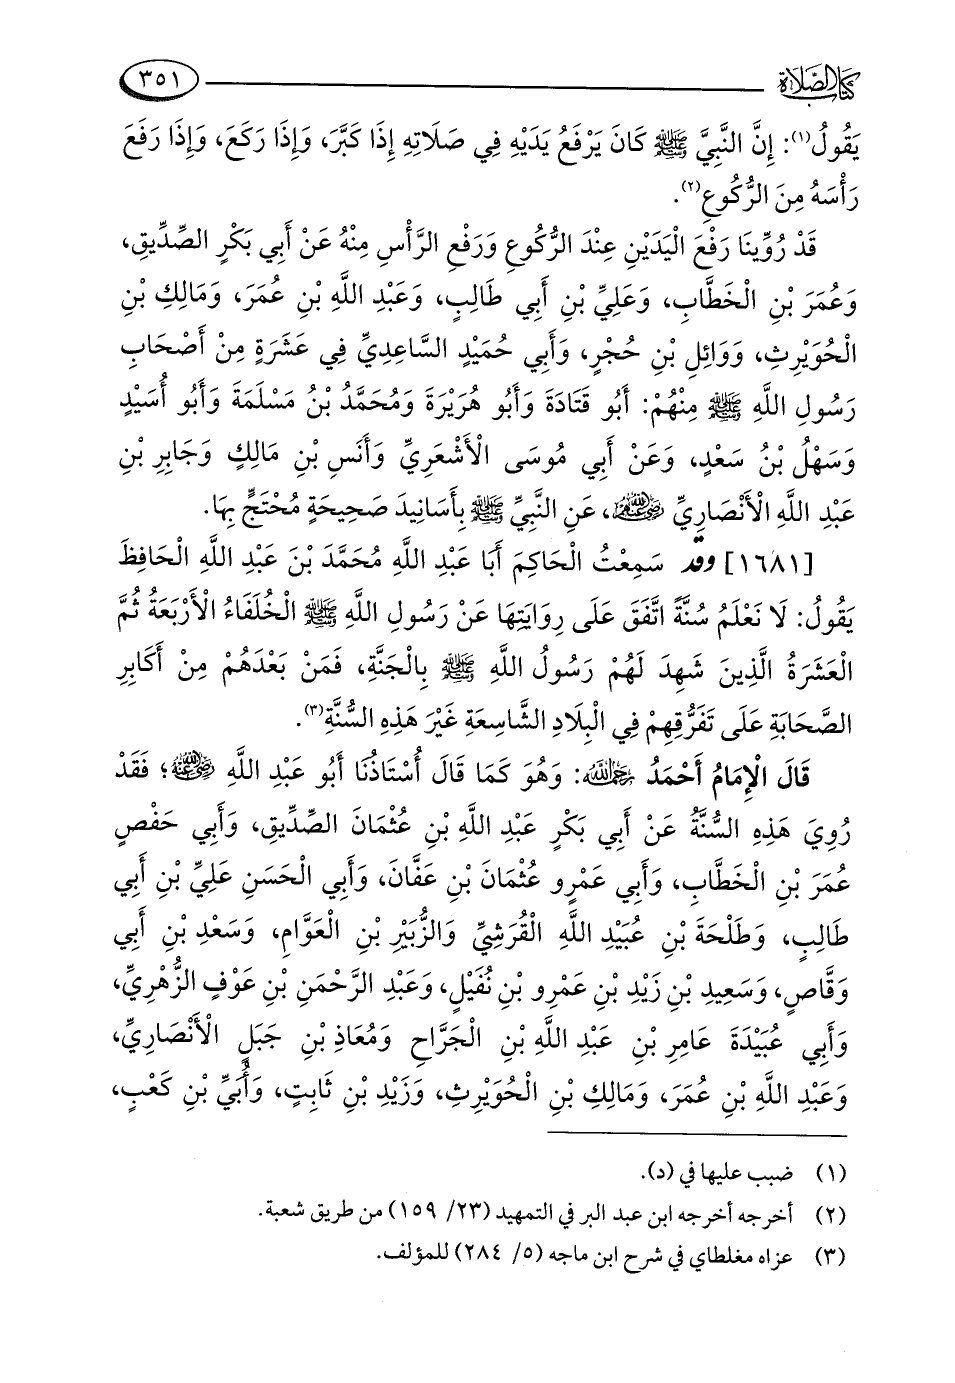 كتاب الصلاة ٣٥١
يَقُولُ(١): إِنَّ النَّبِيَّ ﷺ كَانَ يَرْفَعُ يَدَيْهِ فِي صَلَاتِهِ إِذَا كَبَّرَ، وَإِذَا رَكَعَ، وَإِذَا رَفَعَ
رَأْسَهُ مِنَ الرُّكُوعِ(٢).
قَدْ رُوِّينَا رَفْعَ الْيَدَيْنِ عِنْدَ الرُّكُوعِ وَرَفْعِ الرَّأْسِ مِنْهُ عَنْ أَبِي بَكْرٍ الصِّدِّيقِ،
وَعُمَرَ بْنِ الْخَطَّابِ، وَعَلِيِّ بْنِ أَبِي طَالِبٍ، وَعَبْدِ اللَّهِ بْنِ عُمَرَ، وَمَالِكِ بْنِ
الْحُوَيْرِثِ، وَوَائِلِ بْنِ حُجْرٍ، وَأَبِي حُمَيْدٍ السَّاعِدِيِّ فِي عَشَرَةٍ مِنْ أَصْحَابِ
رَسُولِ اللَّهِ ﷺ مِنْهُمْ: أَبُو قَتَادَةَ وَأَبُو هُرَيْرَةَ وَمُحَمَّدُ بْنُ مَسْلَمَةَ وَأَبُو أُسَيْدٍ
وَسَهْلُ بْنُ سَعْدٍ، وَعَنْ أَبِي مُوسَى الْأَشْعَرِيِّ وَأَنَسِ بْنِ مَالِكٍ وَجَابِرِ بْنِ
عَبْدِ اللَّهِ الْأَنْصَارِيِّ ﵃، عَنِ النَّبِيِّ ﷺ بِأَسَانِيدَ صَحِيحَةٍ مُحْتَجٍّ بِهَا.
[١٦٨١] وقد سَمِعْتُ الْحَاكِمَ أَبَا عَبْدِ اللَّهِ مُحَمَّدَ بْنَ عَبْدِ اللَّهِ الْحَافِظَ
يَقُولُ: لَا نَعْلَمُ سُنَّةً اتَّفَقَ عَلَى رِوَايَتِهَا عَنْ رَسُولِ اللَّهِ ﷺ الْخُلَفَاءُ الْأَرْبَعَةُ ثُمَّ
الْعَشَرَةُ الَّذِينَ شَهِدَ لَهُمْ رَسُولُ اللَّهِ ﷺ بِالْجَنَّةِ، فَمَنْ بَعْدَهُمْ مِنْ أَكَابِرِ
الصَّحَابَةِ عَلَى تَفَرُّقِهِمْ فِي الْبِلَادِ الشَّاسِعَةِ غَيْرَ هَذِهِ السُّنَّةِ(٣).
قَالَ الْإِمَامُ أَحْمَدُ ﵀: وَهُوَ كَمَا قَالَ أُسْتَاذُنَا أَبُو عَبْدِ اللَّهِ ﵁؛ فَقَدْ
رُوِيَ هَذِهِ السُّنَّةُ عَنْ أَبِي بَكْرٍ عَبْدِ اللَّهِ بْنِ عُثْمَانَ الصِّدِّيقِ، وَأَبِي حَفْصٍ
عُمَرَ بْنِ الْخَطَّابِ، وَأَبِي عَمْرٍو عُثْمَانَ بْنِ عَفَّانَ، وَأَبِي الْحَسَنِ عَلِيِّ بْنِ أَبِي
طَالِبٍ، وَطَلْحَةَ بْنِ عُبَيْدِ اللَّهِ الْقُرَشِيِّ وَالزُّبَيْرِ بْنِ الْعَوَّامِ، وَسَعْدِ بْنِ أَبِي
وَقَّاصٍ، وَسَعِيدِ بْنِ زَيْدِ بْنِ عَمْرِو بْنِ نُفَيْلٍ، وَعَبْدِ الرَّحْمَنِ بْنِ عَوْفٍ الزُّهْرِيِّ،
وَأَبِي عُبَيْدَةَ عَامِرِ بْنِ عَبْدِ اللَّهِ بْنِ الْجَرَّاحِ وَمُعَاذِ بْنِ جَبَلٍ الْأَنْصَارِيِّ،
وَعَبْدِ اللَّهِ بْنِ عُمَرَ، وَمَالِكِ بْنِ الْحُوَيْرِثِ، وَزَيْدِ بْنِ ثَابِتٍ، وَأُبَيِّ بْنِ كَعْبٍ،
(١) ضبب عليها في (د).
(٢) أخرجه أخرجه ابن عبد البر في التمهيد (٢٣/ ١٥٩) من طريق شعبة.
(٣) عزاه مغلطاي في شرح ابن ماجه (٥/ ٢٨٤) للمؤلف.